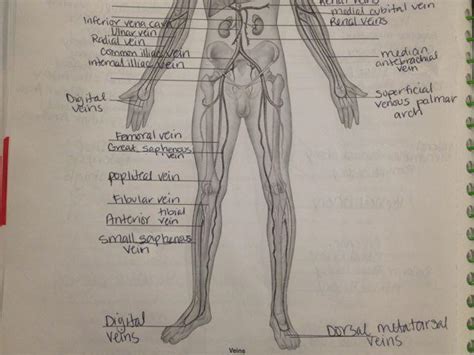 Renal veins
medial cubital vein
Renal veins
Inferior vena cava
Ulnar vein
Radial vein
Common iliac vein
Internal iliac vein
median
antebrachial
vein
Digital
veins
Superficial
venous palmar
arch
Femoral vein
Great saphenous
vein
popliteal vein
Fibular vein
Anterior tibial
vein
small saphenous
vein
Digital
veins
Dorsal metatarsal
veins
Veins